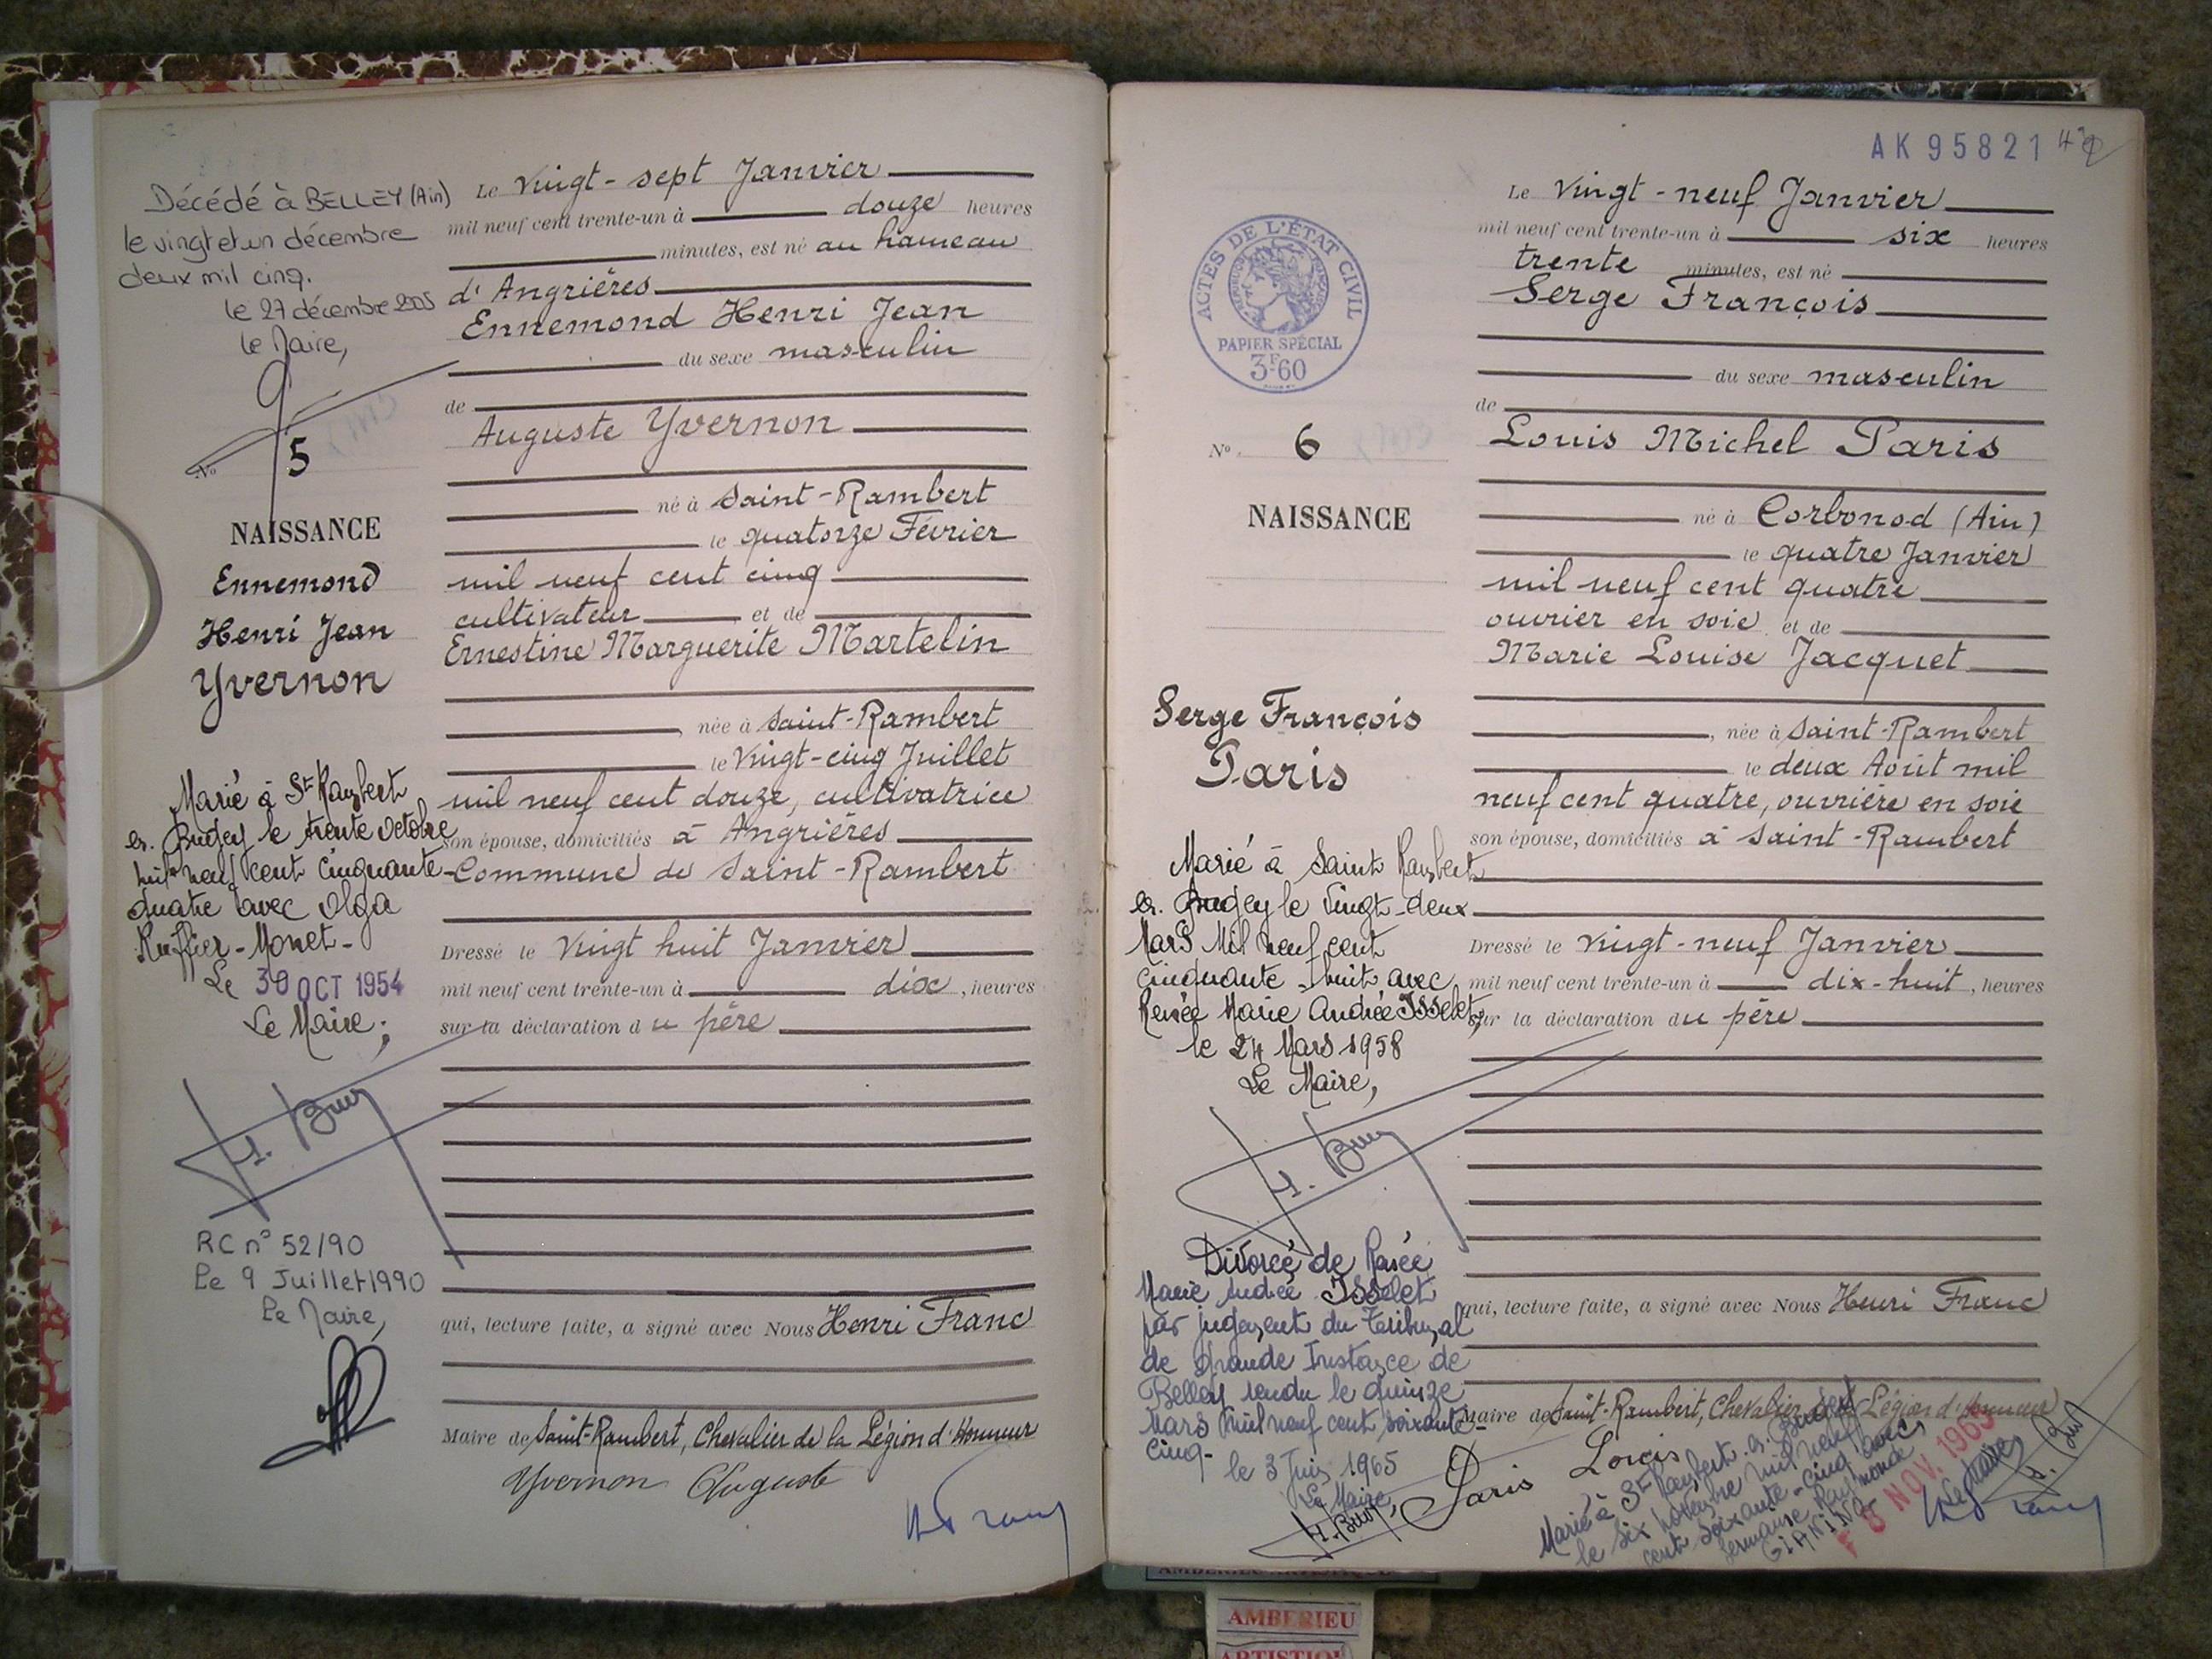 Décédé à BELLEY (Ain)
le vingt et un décembre
deux mil cinq.
le 27 décembre 2005
le Maire,
No 5
NAISSANCE
Ennemond
Henri Jean
Yvernon
Marié à St Rambert
en Bugey le trente Octobre
mil neuf cent cinquante
quatre avec Olga
Ruffier-Monet-
Le 30 OCT 1954
Le Maire;
H. Buy
RC n° 52/90
Le 9 Juillet 1990
Le Maire,
Le Vingt-sept Janvier
mil neuf cent trente-un à douze heures
minutes, est né au hameau
d'Angrières
Ennemond Henri Jean
du sexe masculin
de
Auguste Yvernon
né à Saint-Rambert
le quatorze Février
mil neuf cent cinq
cultivateur et de
Ernestine Marguerite Martelin
, née à Saint-Rambert
le Vingt-cinq Juillet
mil neuf cent douze, cultivatrice
son épouse, domiciliés à Angrières
Commune de Saint-Rambert
Dressé le Vingt huit Janvier
mil neuf cent trente-un à dix, heures
sur la déclaration du père
qui, lecture faite, a signé avec Nous Henri Franc
Maire de Saint-Rambert, Chevalier de la Légion d'Honneur
Yvernon Auguste
H Franc
AK 95821
ACTES DE L'ÉTAT CIVIL
PAPIER SPÉCIAL
3F60
No 6
NAISSANCE
Serge François
Paris
Marié à Saint Rambert
en Bugey le Vingt-deux
Mars Mil neuf cent
cinquante-huit avec
Renée Marie Andrée Isselet,
le 24 Mars 1958
Le Maire,
H. Buy
Divorcé de Renée
Marie Andrée Isselet
par jugement du Tribunal
de Grande Instance de
Belley rendu le quinze
Mars Mil neuf cent soixante-
cinq-
le 3 Juin 1965
Le Maire,
H. Buy
Le Vingt-neuf Janvier
mil neuf cent trente-un à six heures
trente minutes, est né
Serge François
du sexe masculin
de
Louis Michel Paris
né à Corbonod (Ain)
le quatre Janvier
mil neuf cent quatre
ouvrier en soie et de
Marie Louise Jacquet
, née à Saint-Rambert
le deux Août mil
neuf cent quatre, ouvrière en soie
son épouse, domiciliés à Saint-Rambert
Dressé le Vingt-neuf Janvier
mil neuf cent trente-un à dix-huit, heures
sur la déclaration du père
qui, lecture faite, a signé avec Nous Henri Franc
Maire de Saint-Rambert, Chevalier de la Légion d'Honneur
Paris Louis
Marié à St Rambert en Bugey
le six novembre mil neuf
cent soixante-cinq avec
Germaine Raymonde
GIANINA
8 NOV. 1965
Le Maire,
H. Buy
H Franc
AMBERIEU
ARTISTIQUE